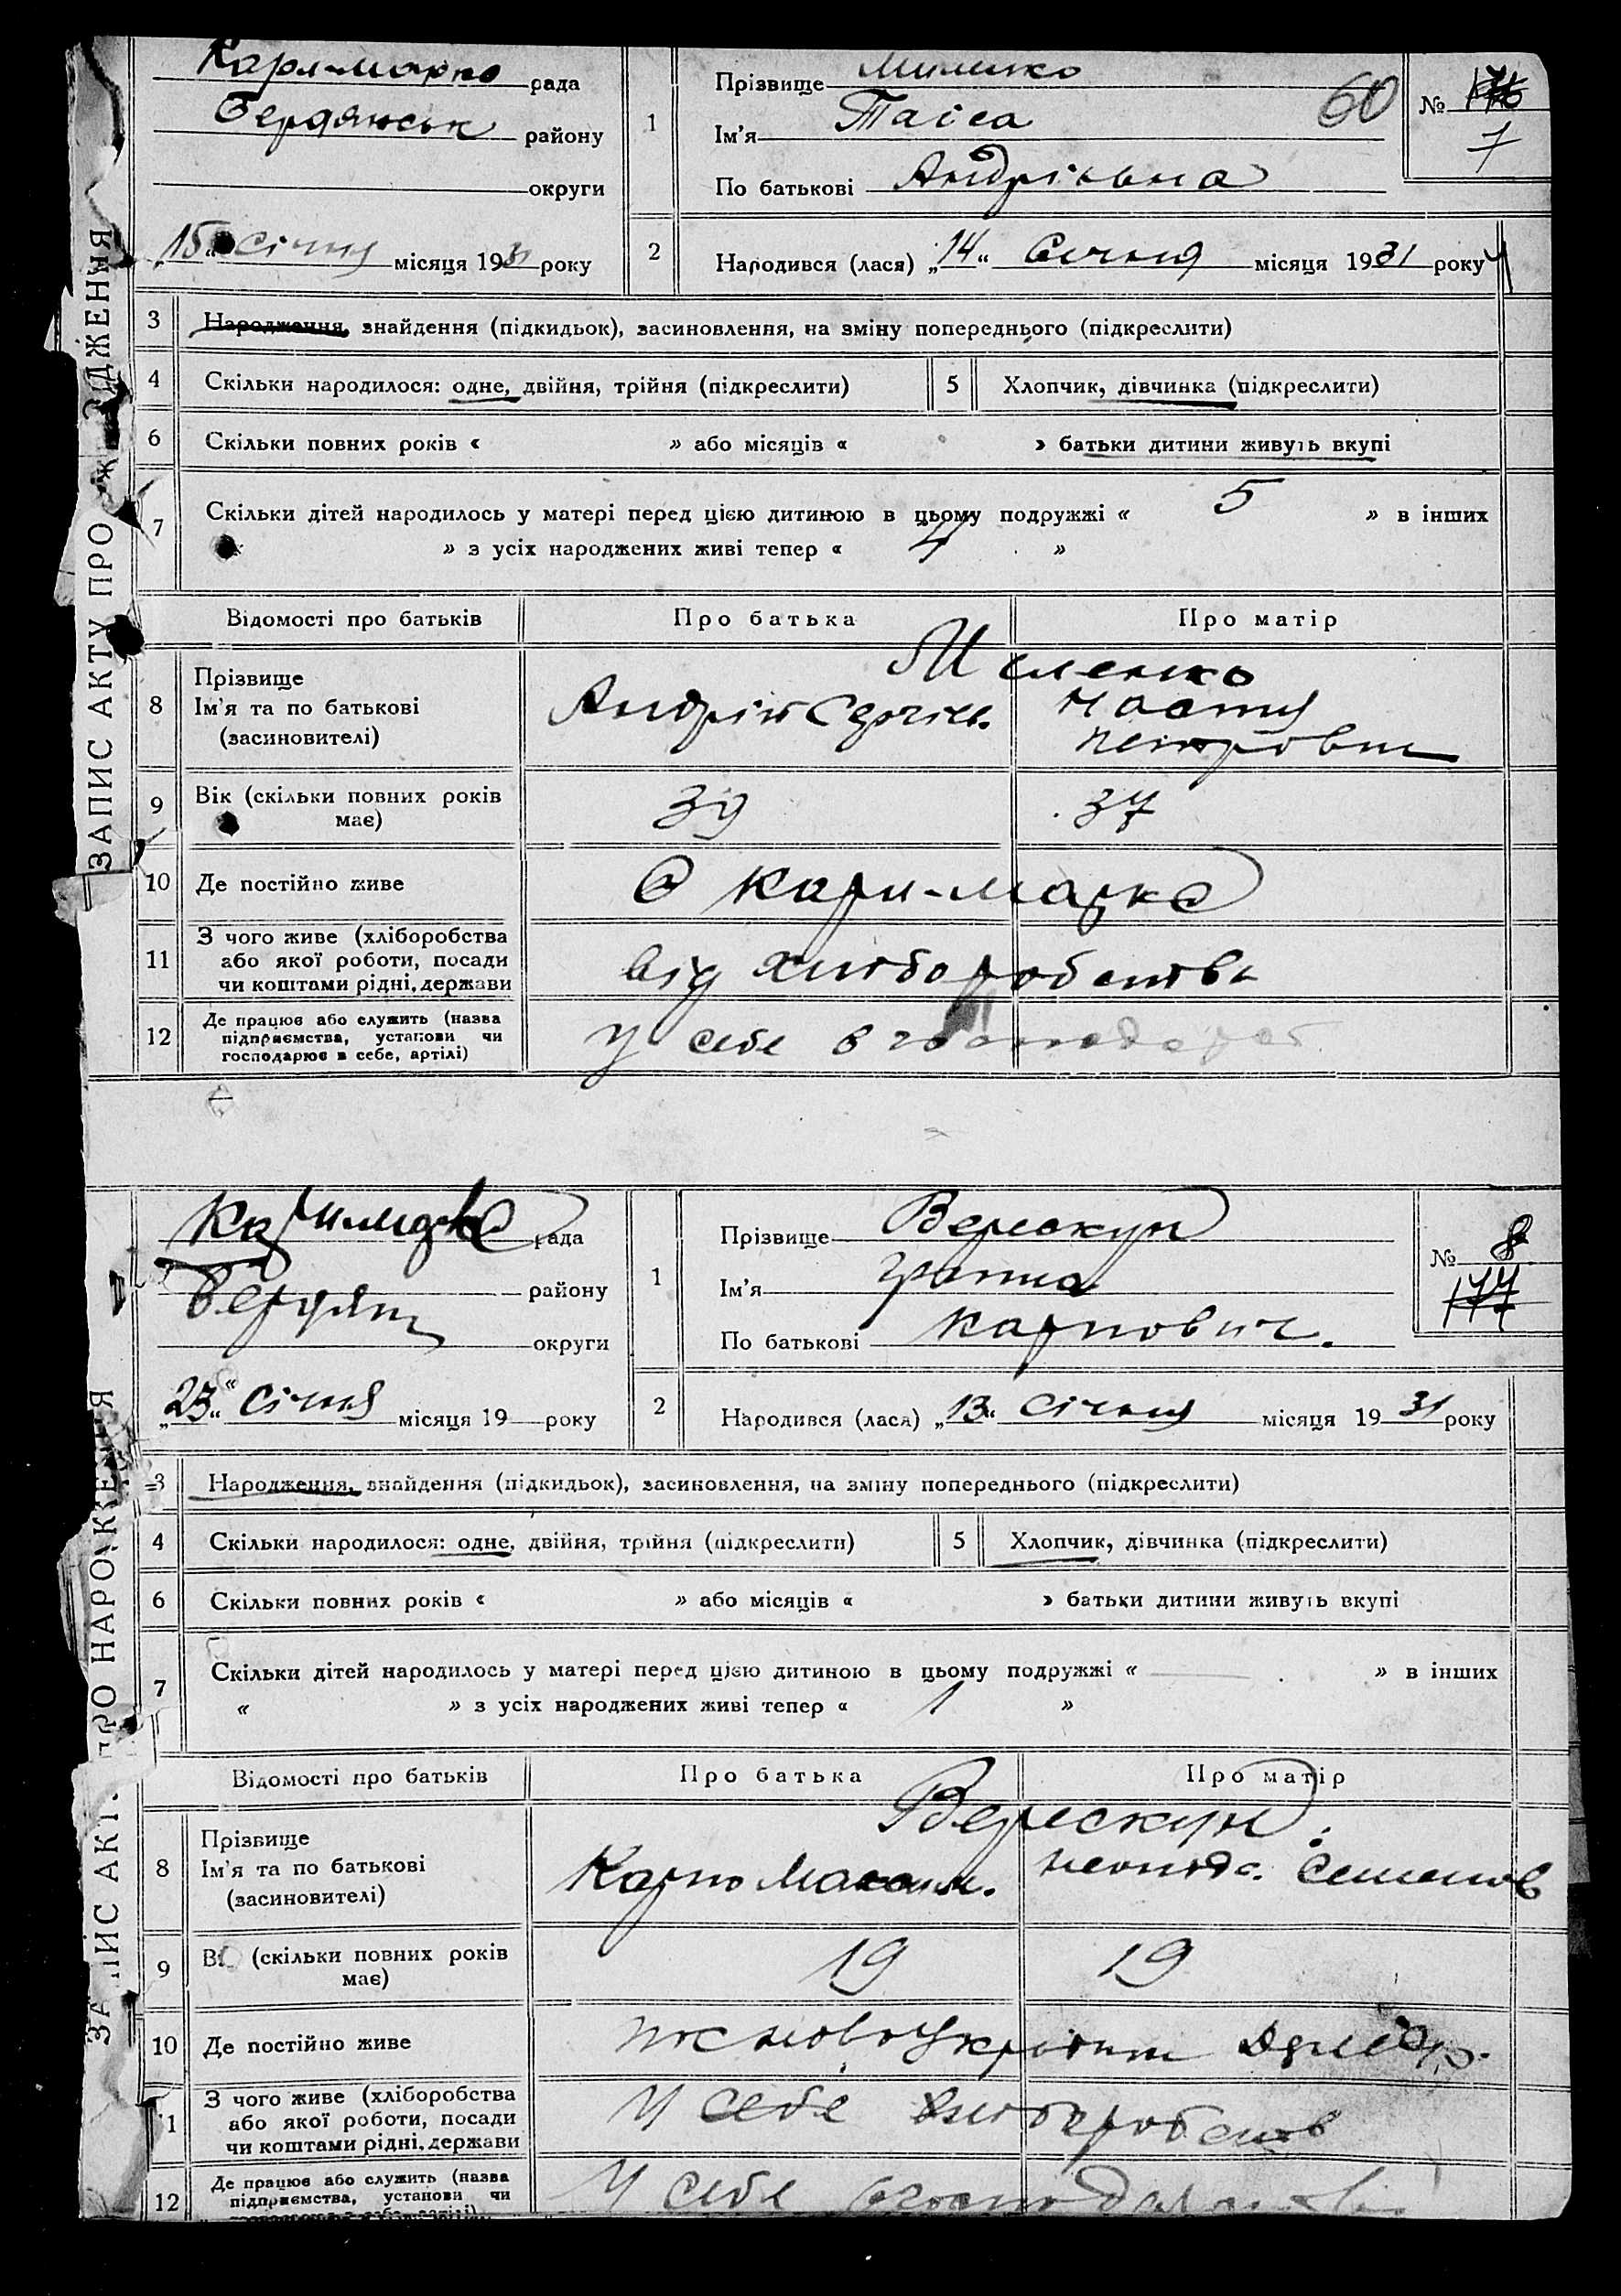 ЗАПИС АКТУ ПРО
Карл-Марко рада
Бердянськ району
округи
„15“ січня місяця 1931 року
1
Прізвище Миленко
Ім'я Таіса
По батькові Андріівна
60
№ 176
7
2
Народився (лася) „14“ Січня місяця 1931 року
3 Народження, знайдення (підкидьок), засиновлення, на зміну попереднього (підкреслити)
4 Скільки народилося: одне, двійня, трійня (підкреслити) 5 Хлопчик, дівчинка (підкреслити)
6 Скільки повних років « » або місяців « » батьки дитини живуть вкупі
7 Скільки дітей народилось у матері перед цією дитиною в цьому подружжі « 5 » в інших
» з усіх народжених живі тепер « 4 »
Відомості про батьків Про батька Про матір
Миленко
8 Прізвище
Ім'я та по батькові
(засиновителі)
Андрій Сергієв. Настя
Петровна
9 Вік (скільки повних років
має)
39 37
10 Де постійно живе
с Карл-Марка
11 З чого живе (хліборобства
або якої роботи, посади
чи коштами рідні, держави
від хліборобства
12 Де працює або служить (назва
підприємства, установи чи
господарює в себе, артілі)
у себе в
ЗАПИС АКТ ПРО НАРОДЖЕННЯ
рада
району
Бердян
округи
„23“ січня місяця 19 року
1
Прізвище Верескун
Ім'я
По батькові Карпович.
№ 8
177
2
Народився (лася) „13“ січня місяця 1931 року
3 Народження, знайдення (підкидьок), засиновлення, на зміну попереднього (підкреслити)
4 Скільки народилося: одне, двійня, трійня (підкреслити) 5 Хлопчик, дівчинка (підкреслити)
6 Скільки повних років « » або місяців « » батьки дитини живуть вкупі
7 Скільки дітей народилось у матері перед цією дитиною в цьому подружжі « — » в інших
« » з усіх народжених живі тепер « 1 »
Відомості про батьків Про батька Про матір
Верескун
8 Прізвище
Ім'я та по батькові
(засиновителі)
Карпо Максим. Семенов
9 Вік (скільки повних років
має)
19 19
10 Де постійно живе
11 З чого живе (хліборобства
або якої роботи, посади
чи коштами рідні, держави
У себе
12 Де працює або служить (назва
підприємства, установи чи
У себе